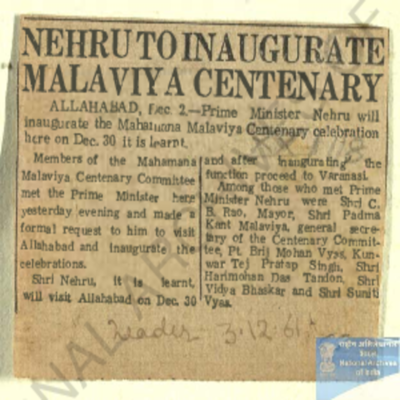 NEHRU TO INAUGURATE
MALAVIYA CENTENARY
ALLAHABAD, Dec. 2—Prime Minister Nehru will
inaugurate the Mahamana Malaviya Centenary celebration
here on Dec. 30 it is learnt.
Members of the Mahamana
Malaviya Centenary Committee
met the Prime Minister here
yesterday evening and made a
formal request to him to visit
Allahabad and inaugurate the
celebrations.
Shri Nehru, it is learnt,
will visit Allahabad on Dec. 30
and after inaugurating the
function proceed to Varanasi.
Among those who met Prime
Minister Nehru were Shri C.
B. Rao, Mayor, Shri Padma
Kant Malaviya, general secre-
tary of the Centenary Commit-
tee, Pt. Brij Mohan Vyas, Kun-
war Tej Pratap Singh, Shri
Harimohan Das Tandon, Shri
Vidya Bhaskar and Shri Suniti
Vyas.
Leader 3.12.61
राष्ट्रीय अभिलेखागार
भारत
National Archives
of India